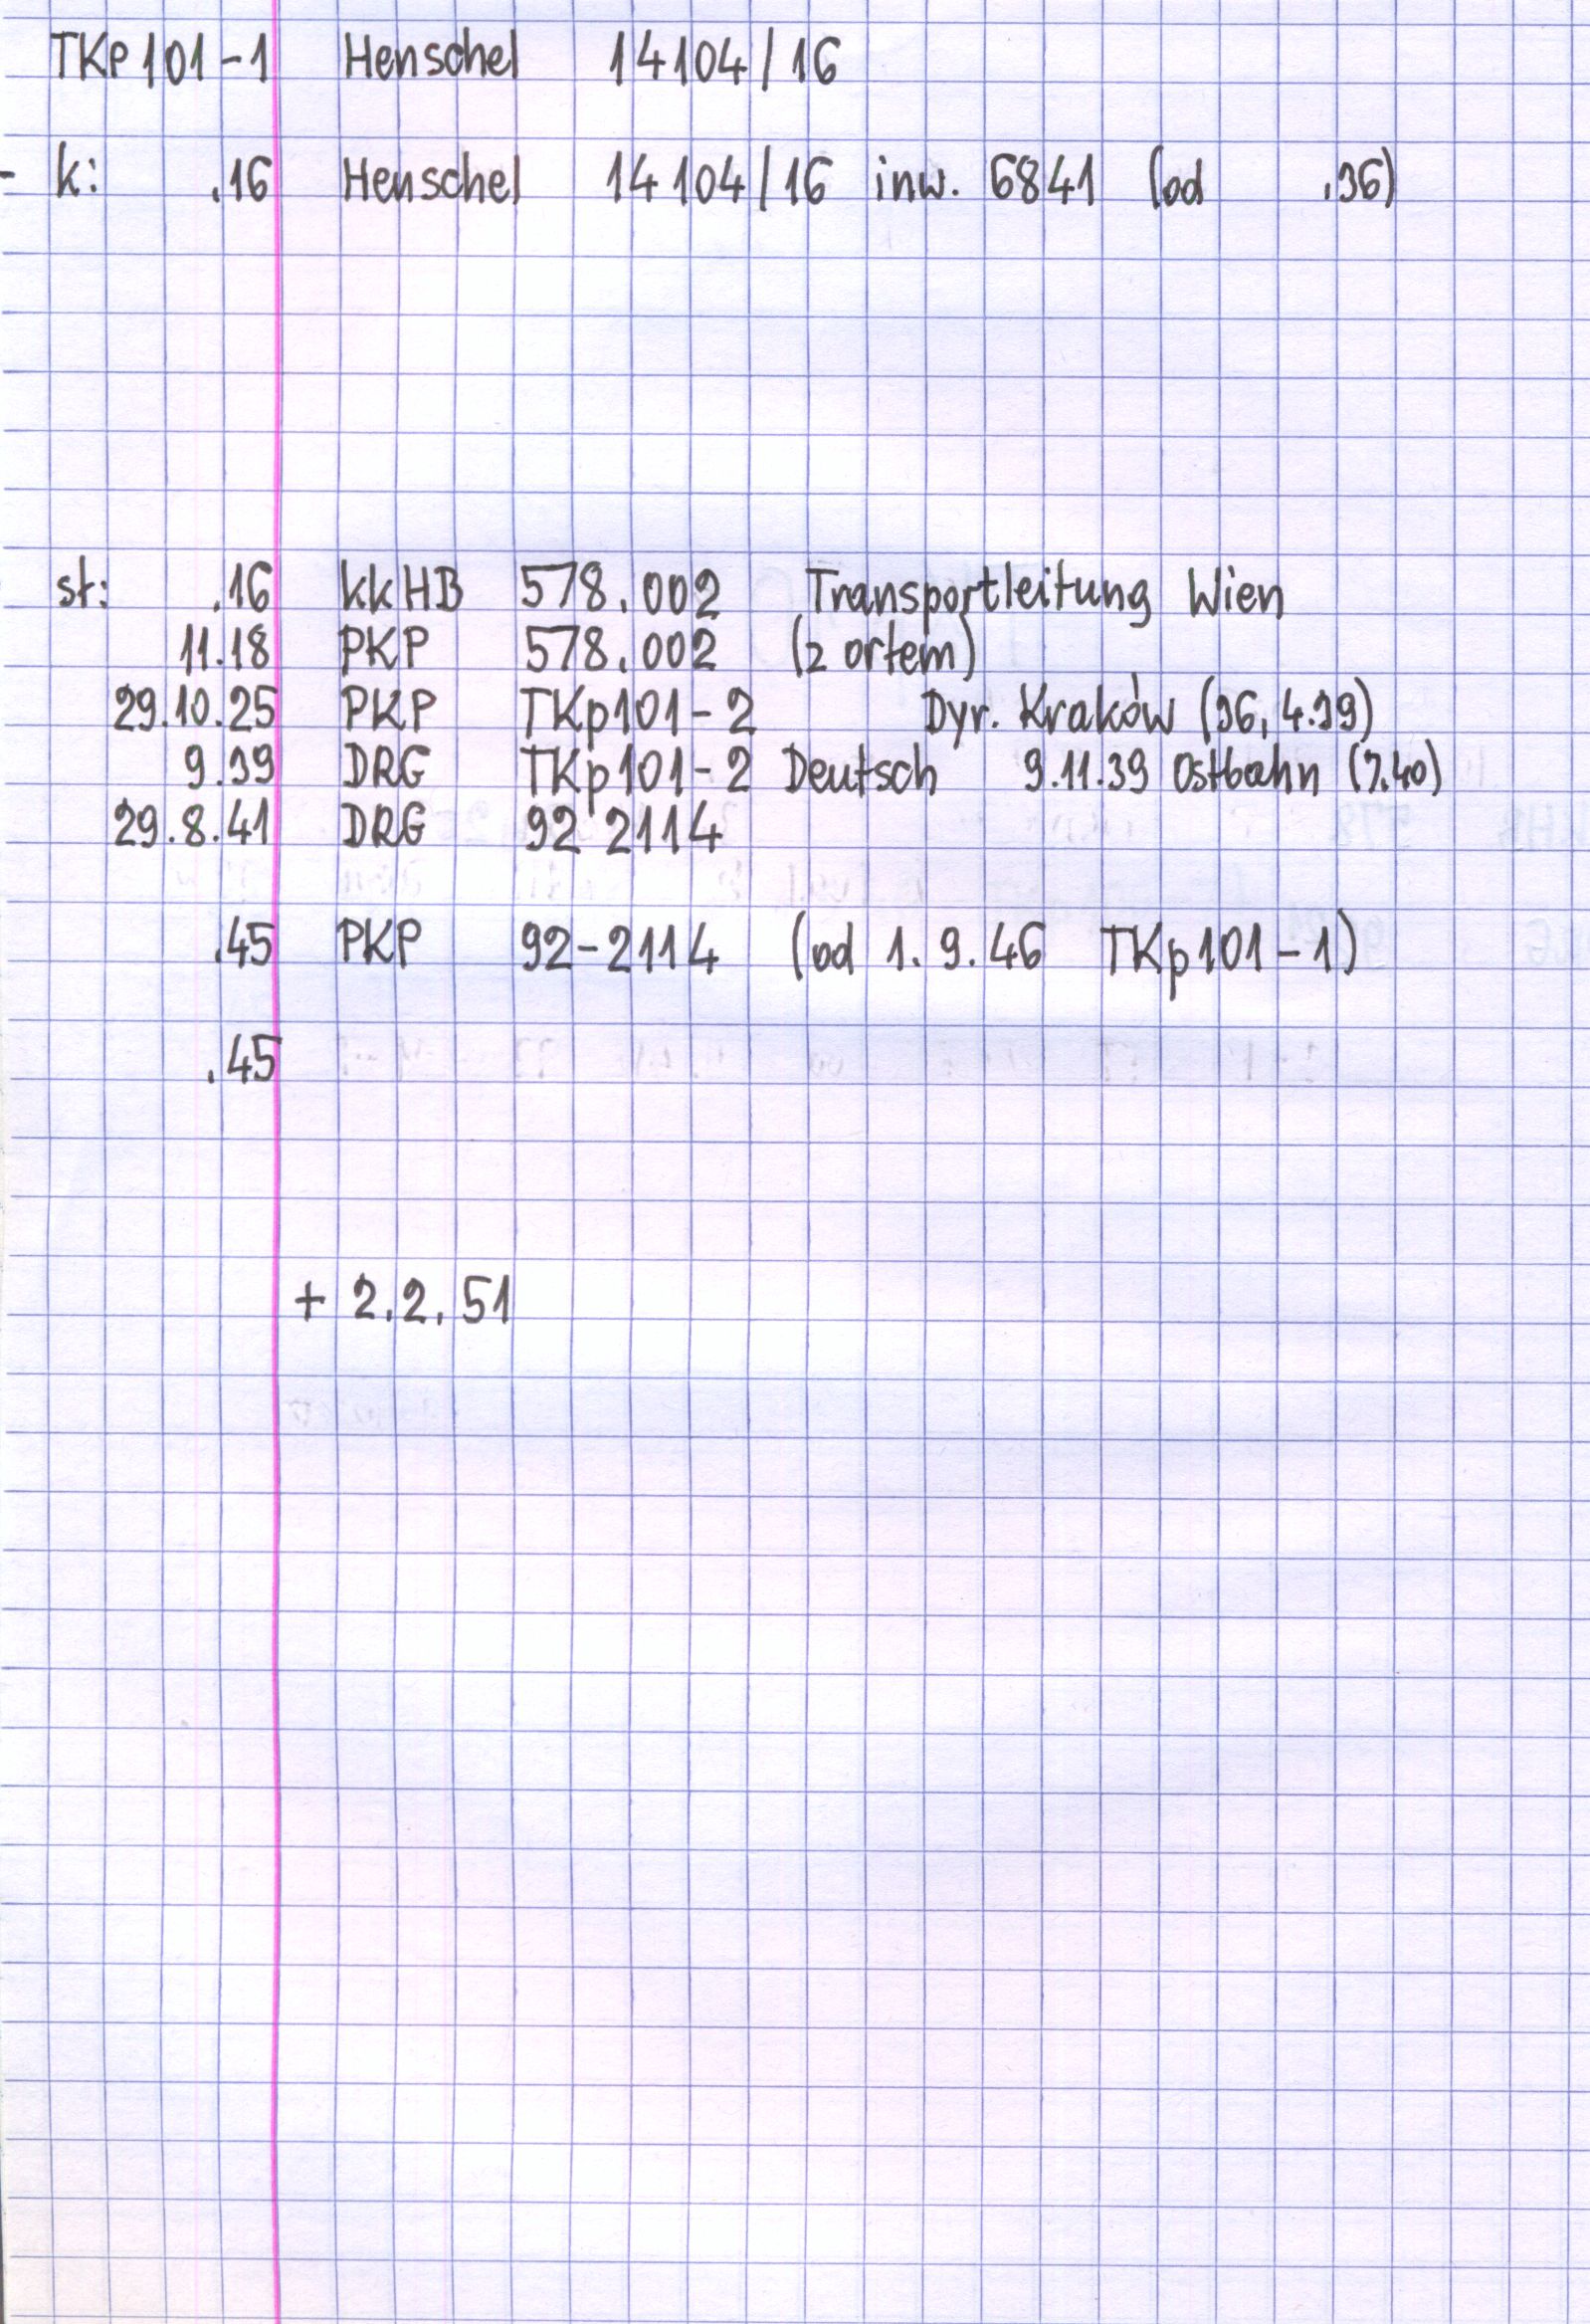 TKp101-1 Henschel 14104/16
- k: .16 Henschel 14104/16 inw. 6841 (od .36)
st: .16 kkHB 578.002 Transportleitung Wien
11.18 PKP 578.002 (z ortem)
29.10.25 PKP TKp101-2 Dyr. Kraków (36, 4.39)
9.39 DRG TKp101-2 Deutsch 9.11.39 Ostbahn (7.40)
29.8.41 DRG 92 2114
.45 PKP 92-2114 (od 1.9.46 TKp101-1)
.45
+ 2.2.51